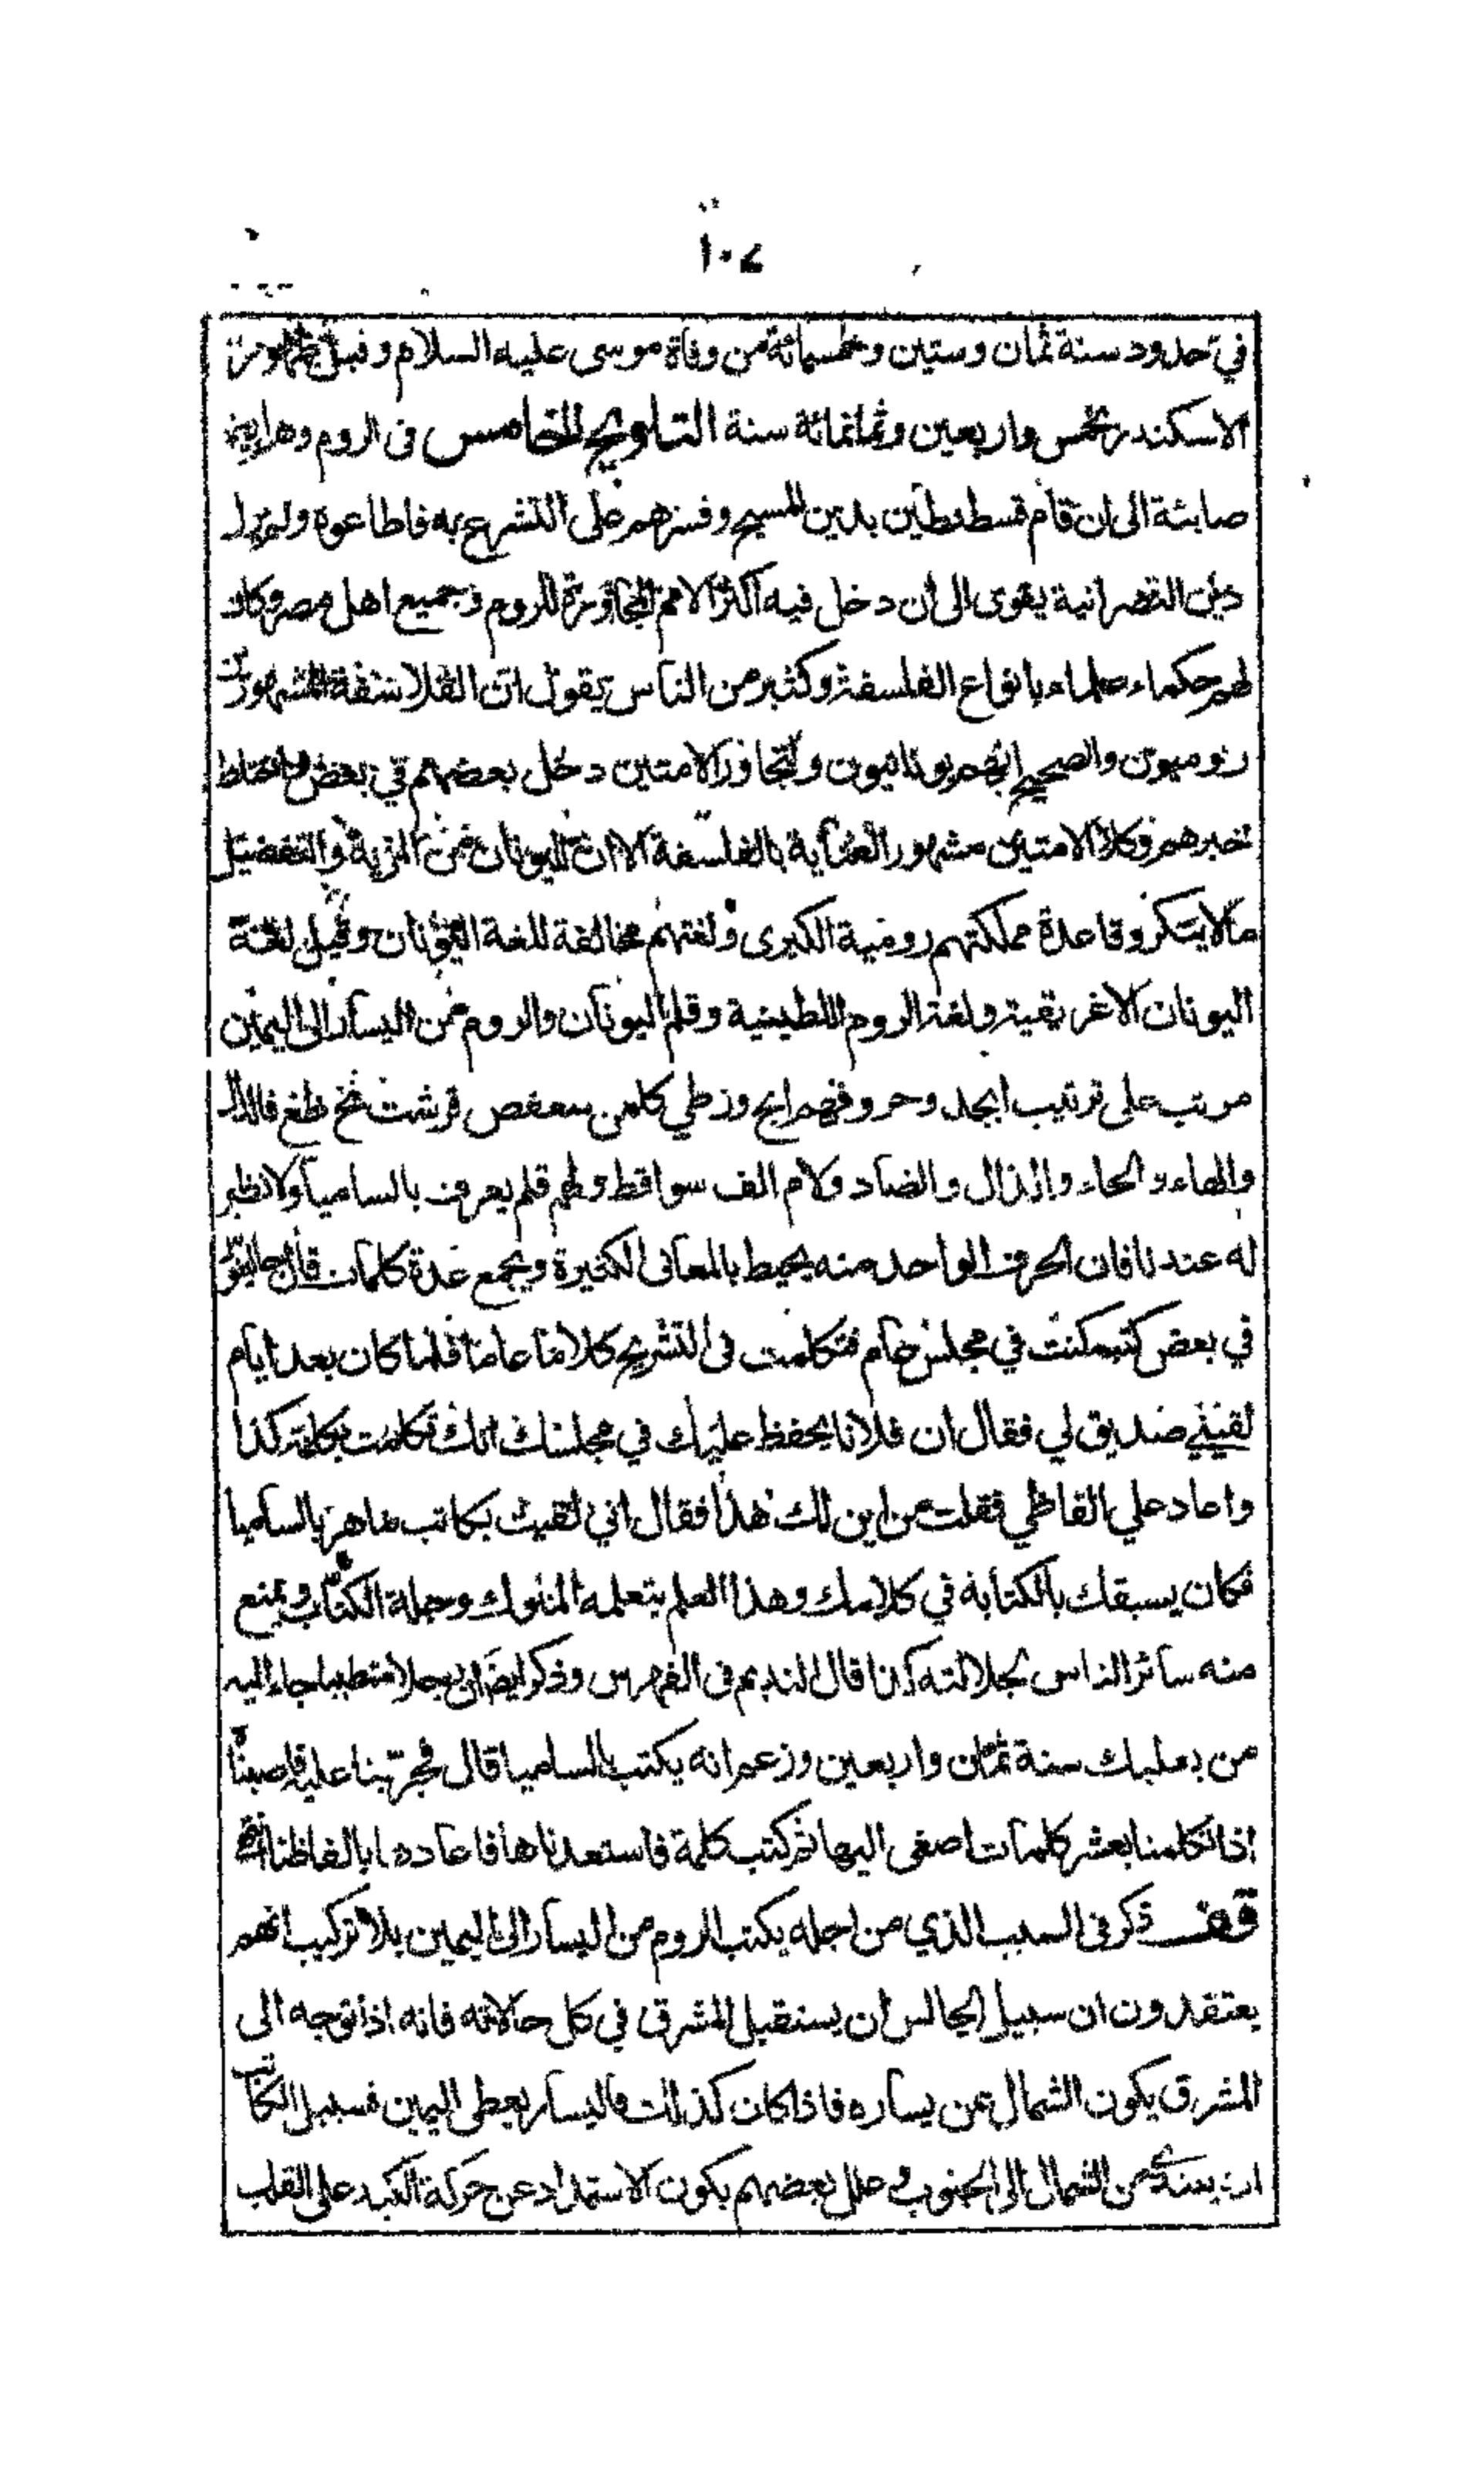 ١٠٤
في حدود سنة ثمان وستين وخمسمائة من وفاة موسى عليه السلام وقبل ظهور
الاسكندر بخمس واربعين وثمانمائة سنة التلويح الخامس فى الروم وهم ايضا
صابئة الى ان قام قسطنطين بدين المسيح وقسرهم على التشرع به فاطاعوه ولم يزل
دين النصرانية يقوى الى أن دخل فيه اكثر الامم المجاورة للروم وجميع اهل مصر وكان
لهم حكماء علماء بانواع الفلسفة وكثير من الناس يقول ان الفلاسفة المشهورين
روميون والصحيح انهم يونانيون ولتجاور الامتين دخل بعضهم في بعض واختلط
خبرهم وكلا الامتين مشهور العناية بالفلسفة الا ان لليونان من المزية والتفضيل
ما لا ينكر وقاعدة مملكتهم رومية الكبرى ولغتهم مخالفة للغة اليونان وقيل لغة
اليونان الاغريقية ولغة الروم اللطينية وقلم اليونان والروم من اليسار الى اليمين
مرتب على ترتيب ابجد وحروفهم ابج وز طي كلمن سعفص قرشت ثخ ظغ فالدال
والهاء والحاء والذال والضاد ولام الف سواقط ولهم قلم يعرف بالساميا ولا نظير
له عندنا فان الحرف الواحد منه يحيط بالمعانى الكثيرة ويجمع عدة كلمات قال جالينوس
في بعض كتبه كنت في مجلس عام فتكلمت فى التشريح كلاما عاما فلما كان بعد ايام
لقيني صديق لي فقال ان فلانا يحفظ عليك في مجلسك انك تكلمت بكلمة كذا
واعاد علي الفاظي فقلت من اين لك هذا فقال اني لقيت بكاتب ماهر بالساميا
فكان يسبقك بالكتابة في كلامك وهذا العلم يتعلمه الملوك وجملة الكتاب ويمنع
منه سائر الناس لجلالته كذا قال النديم فى الفهرس وذكر ايضا ان رجلا متطببا جاء اليه
من بعلبك سنة ثمان واربعين وزعم انه يكتب بالساميا قال فجربنا عليه فاصبناه
اذا تكلمنا بعشر كلمات اصغى اليها ثم كتب كلمة فاستعدناها فاعادها بالفاظنا انتهى
قف ذكر فى السبب الذي من اجله يكتب الروم من اليسار الى اليمين بلا تركيب انهم
يعتقدون ان سبيل الجالس ان يستقبل المشرق في كل حالاته فانه اذا توجه الى
المشرق يكون الشمال عن يساره فاذا كان كذلك فاليسار يعطى اليمين فسبيل الكاتب
ان يبتدئ من الشمال الى الجنوب وعلل بعضهم بكون الاستمداد عن حركة الكبد على القلب